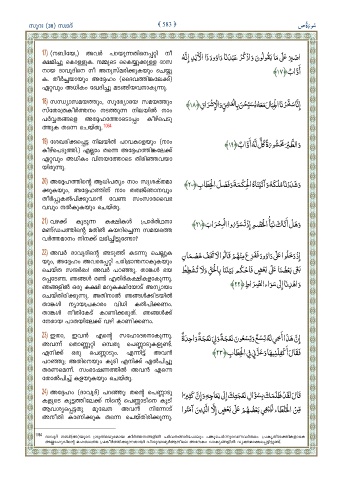 സൂറ: (38) സ്വാദ്
❬ 583 ❭
سُورَةُ ص
17) (നബിയേ,) അവർ പറയുന്നതിനെപ്പറ്റി നീ
ക്ഷമിച്ചു കൊള്ളുക. നമ്മുടെ കൈയ്യൂക്കുള്ള ദാസ
നായ ദാവൂദിനെ നീ അനുസ്മരിക്കുകയും ചെയ്യു
ക. തീർച്ചയായും അദ്ദേഹം (ദൈവത്തിങ്കലേക്ക്)
ഏറ്റവും അധികം ഖേദിച്ചു മടങ്ങിയവനാകുന്നു.
اصْبِرْ عَلَىٰ مَا يَقُولُونَ وَاذْكُرْ عَبْدَنَا دَاوُودَ ذَا الْأَيْدِ إِنَّهُ
أَوَّابٌ ﴿١٧﴾
18) സന്ധ്യാസമയത്തും, സൂര്യോദയ സമയത്തും
സ്തോത്രകീർത്തനം നടത്തുന്ന നിലയിൽ നാം
പർവ്വതങ്ങളെ അദ്ദേഹത്തോടൊപ്പം കീഴ്പെടു
ത്തുക തന്നെ ചെയ്തു.
إِنَّا سَخَّرْنَا الْجِبَالَ مَعَهُ يُسَبِّحْنَ بِالْعَشِيِّ وَالْإِشْرَاقِ ﴿١٨﴾
19) ശേഖരിക്കപ്പെട്ട നിലയിൽ പറവകളെയും (നാം
കീഴ്പെടുത്തി.) എല്ലാം തന്നെ അദ്ദേഹത്തിങ്കലേക്ക്
ഏറ്റവും അധികം വിനയത്തോടെ തിരിഞ്ഞവയാ
യിരുന്നു.
وَالطَّيْرَ مَحْشُورَةً كُلٌّ لَّهُ أَوَّابٌ ﴿١٩﴾
20) അദ്ദേഹത്തിന്റെ ആധിപത്യം നാം സുശക്തമാ
ക്കുകയും, അദ്ദേഹത്തിന് നാം തത്വജ്ഞാനവും
തീർപ്പുകൽപിക്കുവാൻ വേണ്ട സംസാരവൈഭ
വവും നൽകുകയും ചെയ്തു.
وَشَدَدْنَا مُلْكَهُ وَآتَيْنَاهُ الْحِكْمَةَ وَفَصْلَ الْخِطَابِ ﴿٢٠﴾
21) വഴക്ക് കൂടുന്ന കക്ഷികൾ പ്രാർത്ഥനാ
മണ്ഡപത്തിന്റെ മതിൽ കയറിച്ചെന്ന സമയത്തെ
വർത്തമാനം നിനക്ക് ലഭിച്ചിട്ടുണ്ടോ?
وَهَلْ أَتَاكَ نَبَأُ الْخَصْمِ إِذْ تَسَوَّرُوا الْمِحْرَابَ ﴿٢١﴾
22) അവർ ദാവൂദിന്റെ അടുത്ത് കടന്നു ചെല്ലുക
യും, അദ്ദേഹം അവരെപ്പറ്റി പരിഭ്രാന്തനാകുകയും
ചെയ്ത സന്ദർഭം! അവർ പറഞ്ഞു. താങ്കൾ ഭയ
പ്പെടേണ്ട. ഞങ്ങൾ രണ്ട് എതിർകക്ഷികളാകുന്നു.
ഞങ്ങളിൽ ഒരു കക്ഷി മറുകക്ഷിയോട് അന്യായം
ചെയ്തിരിക്കുന്നു. അതിനാൽ ഞങ്ങൾക്കിടയിൽ
താങ്കൾ ന്യായപ്രകാരം വിധി കൽപിക്കണം.
താങ്കൾ നീതികേട് കാണിക്കരുത്. ഞങ്ങൾക്ക്
നേരായ പാതയിലേക്ക് വഴി കാണിക്കണം.
إِذْ دَخَلُوا عَلَىٰ دَاوُودَ فَفَزِعَ مِنْهُمْ قَالُوا لَا تَخَفْ خَصْمَانِ
بَغَىٰ بَعْضُنَا عَلَىٰ بَعْضٍ فَاحْكُم بَيْنَنَا بِالْحَقِّ وَلَا تُشْطِطْ
وَاهْدِنَا إِلَىٰ سَوَاءِ الصِّرَاطِ ﴿٢٢﴾
23) ഇതാ, ഇവൻ എന്റെ സഹോദരനാകുന്നു.
അവന് തൊണ്ണൂറ്റി ഒമ്പതു പെണ്ണാടുകളുണ്ട്.
എനിക്ക് ഒരു പെണ്ണാടും. എന്നിട്ട് അവൻ
പറഞ്ഞു; അതിനെയും കൂടി എനിക്ക് ഏൽപിച്ചു
തരണമെന്ന്. സംഭാഷണത്തിൽ അവൻ എന്നെ
തോൽപിച്ച് കളയുകയും ചെയ്തു.
إِنَّ هَٰذَا أَخِي لَهُ تِسْعٌ وَتِسْعُونَ نَعْجَةً وَلِيَ نَعْجَةٌ وَاحِدَةٌ
فَقَالَ أَكْفِلْنِيهَا وَعَزَّنِي فِي الْخِطَابِ ﴿٢٣﴾
24) അദ്ദേഹം (ദാവൂദ്) പറഞ്ഞു: തന്റെ പെണ്ണാടു
കളുടെ കൂട്ടത്തിലേക്ക് നിന്റെ പെണ്ണാടിനെ കൂടി
ആവശ്യപ്പെട്ടതു മുഖേന അവൻ നിന്നോട്
അനീതി കാണിക്കുക തന്നെ ചെയ്തിരിക്കുന്നു.
قَالَ لَقَدْ ظَلَمَكَ بِسُؤَالِ نَعْجَتِكَ إِلَىٰ نِعَاجِهِ وَإِنَّ كَثِيرًا
مِّنَ الْخُلَطَاءِ لَيَبْغِي بَعْضُهُمْ عَلَىٰ بَعْضٍ إِلَّا الَّذِينَ آمَنُوا